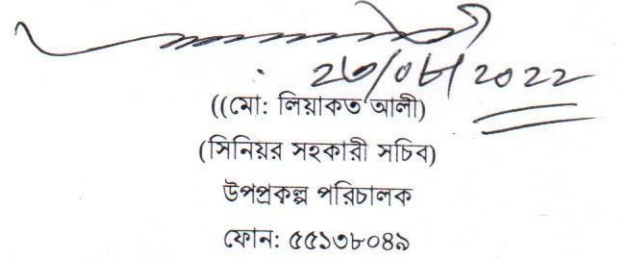 ((মো: লিয়াকত আলী)
(সিনিয়র সহকারী সচিব)
উপপ্রকল্প পরিচালক
ফোন: ৫৫১৩৮০৪৯